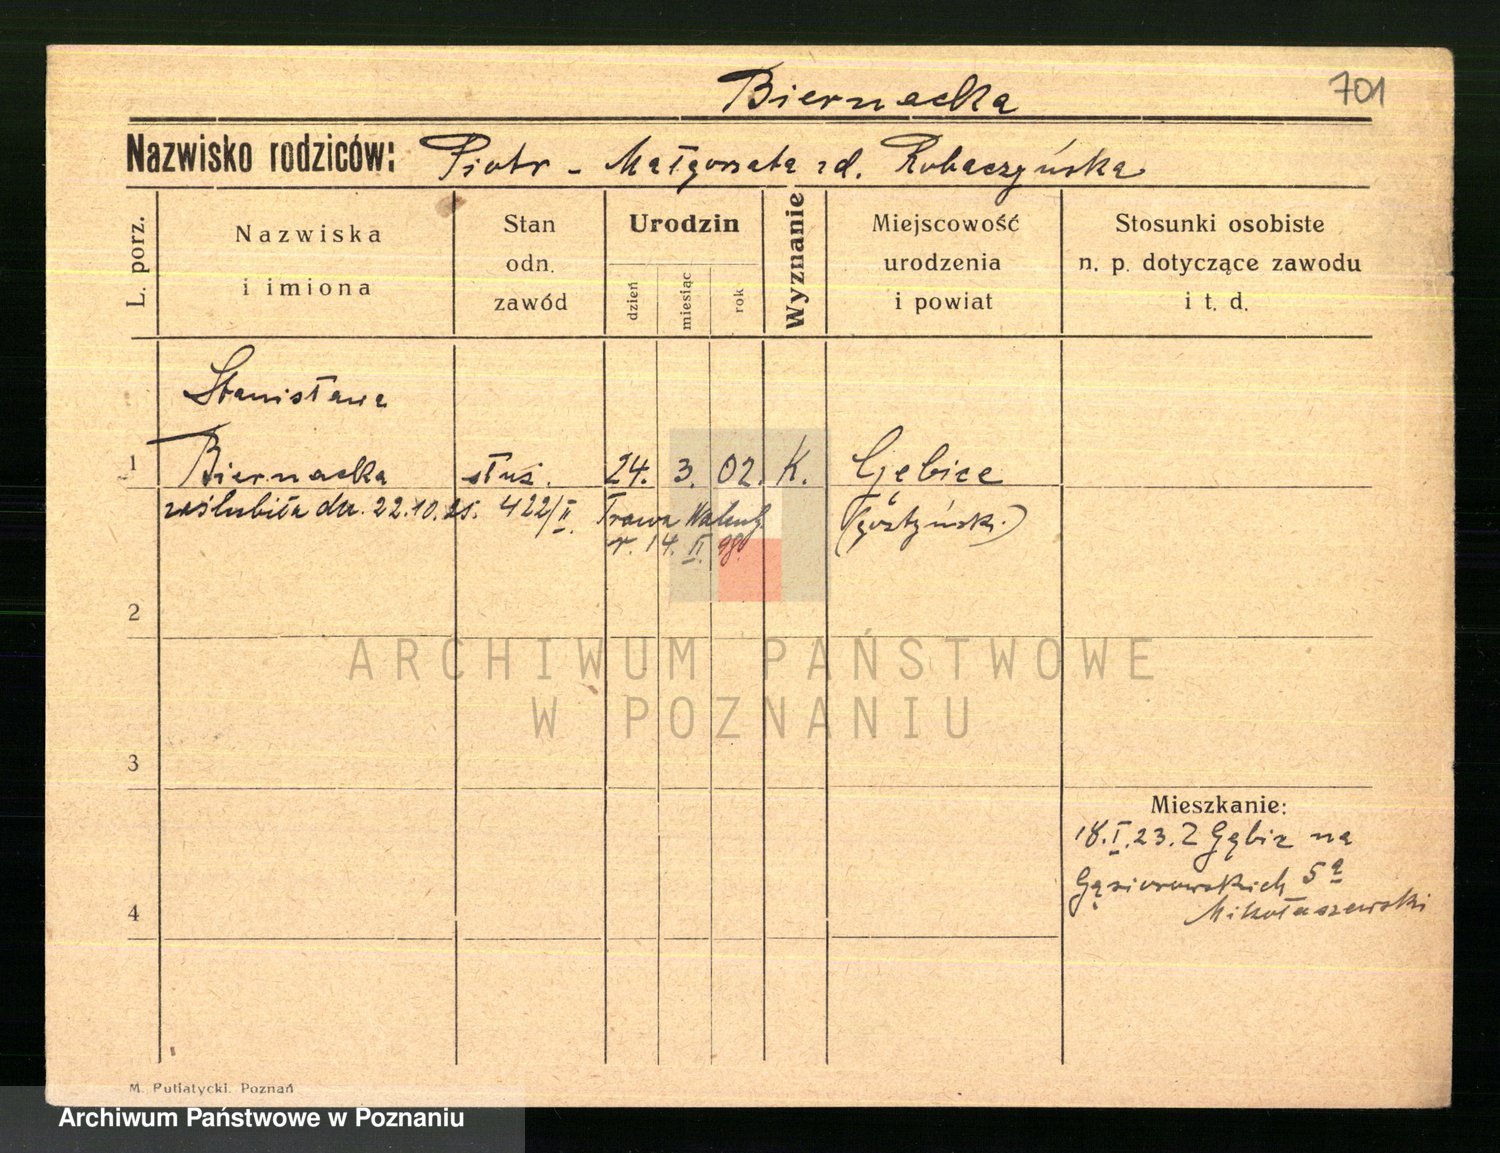 Biernacka
701
Nazwisko rodziców: Piotr - Małgorzata zd. Robaczyńska
L. porz.
Nazwiska
i imiona
Stan
odn.
zawód
Urodzin
dzień
miesiąc
rok
Wyznanie
Miejscowość
urodzenia
i powiat
Stosunki osobiste
n. p. dotyczące zawodu
i t. d.
Stanisława
1 Biernacka służ. 24. 3. 02. K. Gębice
zaślubiła dn. 22.10.25. 422/II. Trawa Walenty (gostyński)
r. 14. II. 98.
2
ARCHIWUM PAŃSTWOWE
W POZNANIU
3
Mieszkanie:
18.I.23. Z Gębic na
Gąsiorowskich 5a
Mikołaszewski
4
M. Putiatycki. Poznań
Archiwum Państwowe w Poznaniu